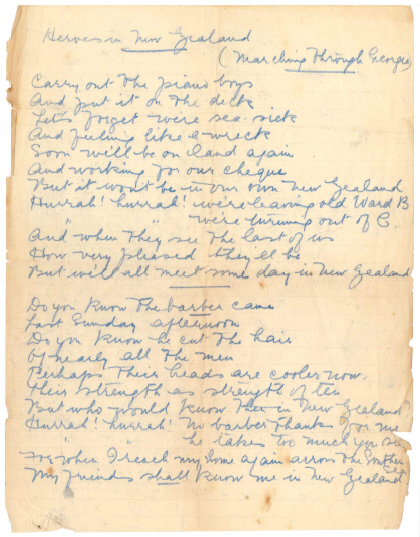 Heroes in New Zealand
(Marching Through Georgia)
Carry out the piano boys
And put it on the deck
Let's forget we're sea-sick
And feeling like a wreck
Soon will be on land again
And working for our cheque
But it won't be in our own New Zealand
Hurrah! hurrah! we're leaving old Ward B
" " we're turning out of C.
And when they see the last of us
How very pleased they'll be
But we'll all meet some day in New Zealand
Do you know the barber came
Last Sunday afternoon
Do you know he cut the hair
Of nearly all the men
Perhaps their heads are cooler now,
Their strength as strength of ten
But who would know them in New Zealand
Hurrah! hurrah! no barber thanks for me
" " he takes too much you see
For when I reach my home again across the Southern Sea
My friends shall know me in New Zealand